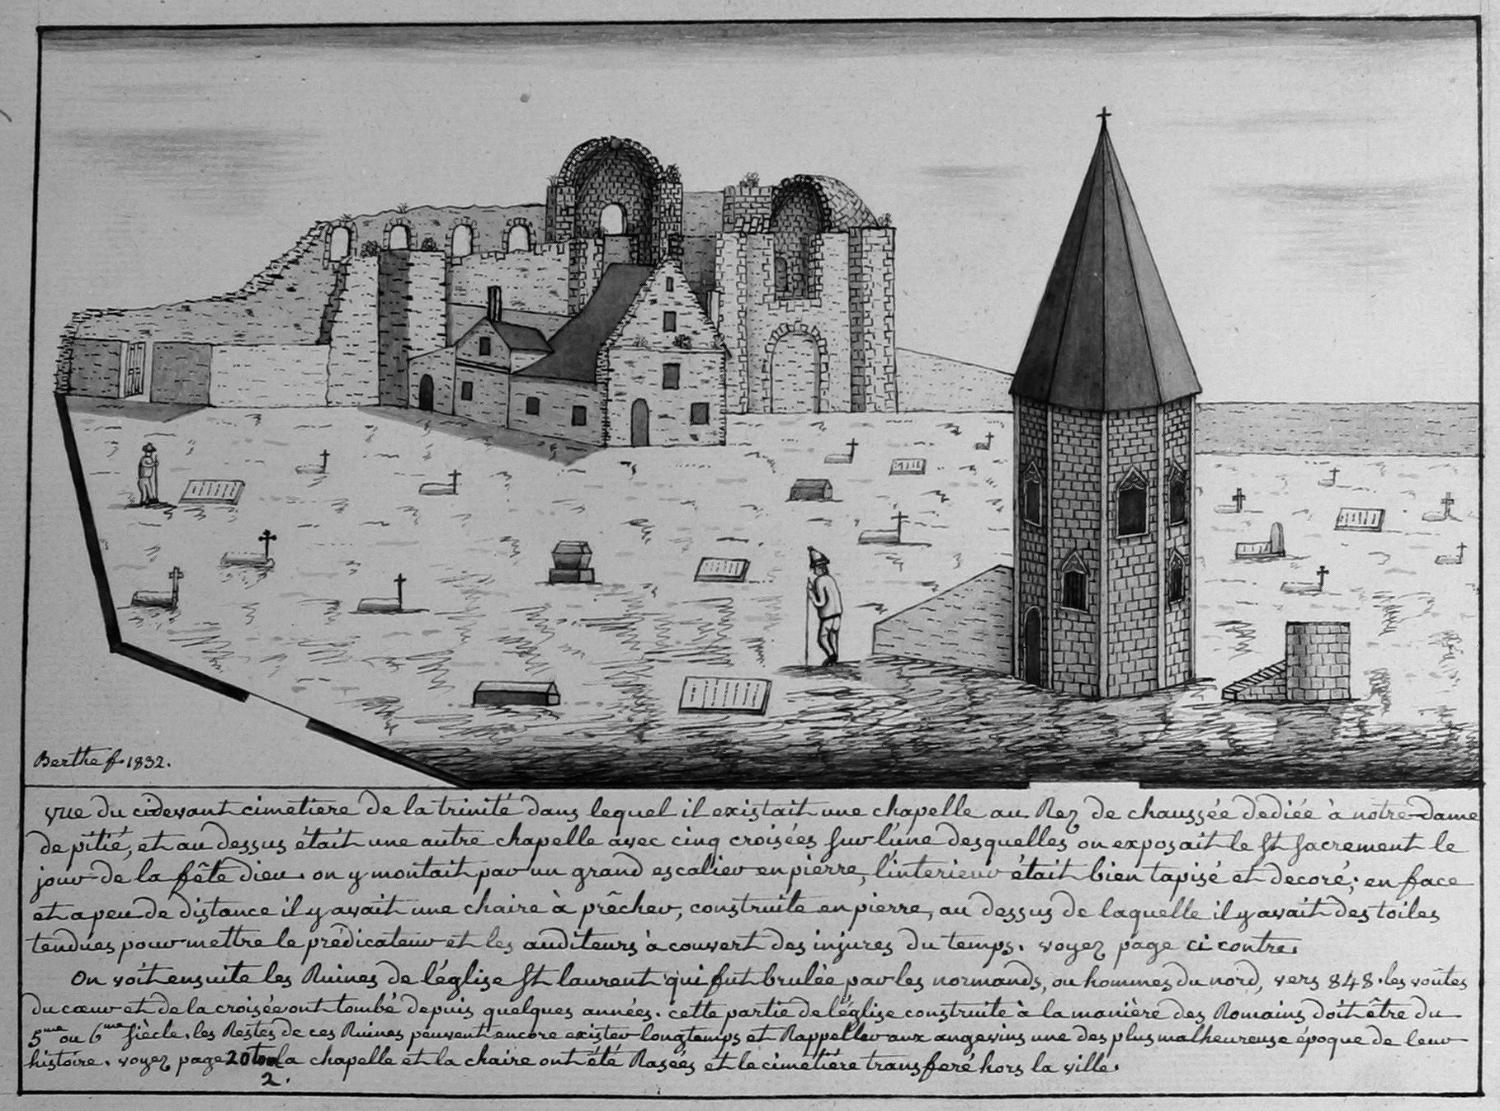 Berthe f. 1832.
vue du cidevant cimetiere de la trinité dans lequel il existait une chapelle au Rez de chaussée dediée à notre-dame
de pitié, et au dessus était une autre chapelle avec cinq croisées sur l'une desquelles on exposait le St Sacrement le
jour de la fête dieu. on y montait par un grand escalier en pierre, l'interieur était bien tapisé et decoré; en face
et a peu de distance il y avait une chaire à prêcher, construite en pierre, au dessus de laquelle il y avait des toiles
tendues pour mettre le prédicateur et les auditeurs à couvert des injures du temps. voyez page ci contre.
On voit ensuite les Ruines de l'église St laurent qui fut brulée par les normands, ou hommes du nord, vers 848. les voûtes
du cœur et de la croisée ont tombé depuis quelques années. cette partie de l'église construite à la manière des Romains doit être du
5me ou 6me siècle. les Restes de ces Ruines peuvent encore exister longtemps et Rappeller aux angevins une des plus malheureuse époque de leur
histoire. voyez page 20 la chapelle et la chaire ont été Rasées et le cimetière transferé hors la ville.
2.